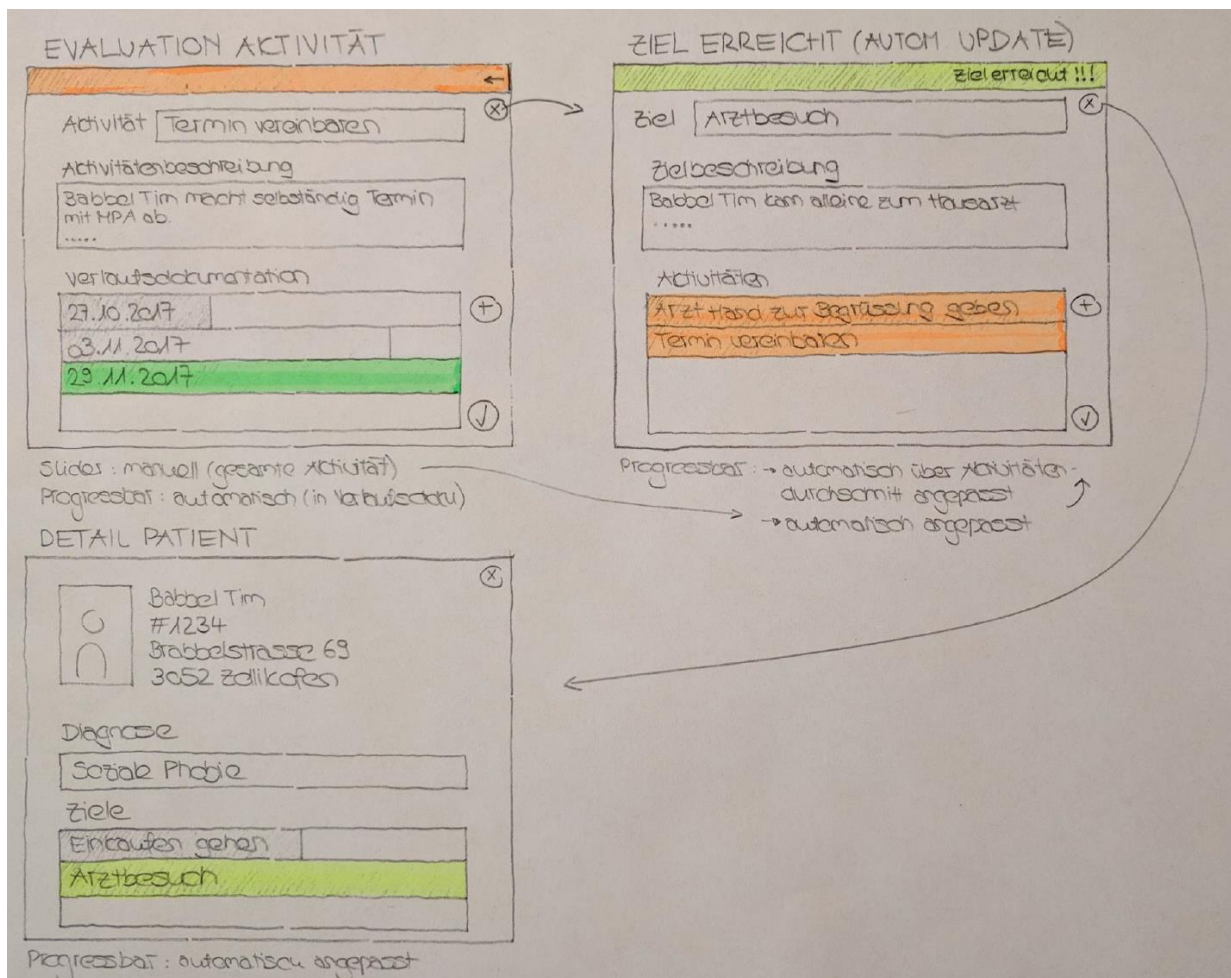 EVALUATION AKTIVITÄT
←
Aktivität Termin vereinbaren
Aktivitätenbeschreibung
Babbel Tim macht selbständig Termin
mit MPA ab.
.....
Verlaufsdokumentation
27.10.2017
03.11.2017
29.11.2017
Slider: manuell (gesamte Aktivität)
Progressbar: automatisch (in Verlaufsdoku)
ZIEL ERREICHT (AUTOM UPDATE)
Ziel erreicht !!!
Ziel Arztbesuch
Zielbeschreibung
Babbel Tim kann alleine zum Hausarzt
.....
Aktivitäten
Arzt Hand zur Begrüssung geben
Termin vereinbaren
Progressbar: → automatisch über Aktivitäten-
durchschnitt angepasst
→ automatisch angepasst
DETAIL PATIENT
Babbel Tim
#1234
Brabbelstrasse 69
3052 Zollikofen
Diagnose
Soziale Phobie
Ziele
Einkaufen gehen
Arztbesuch
Progressbar: automatisch angepasst